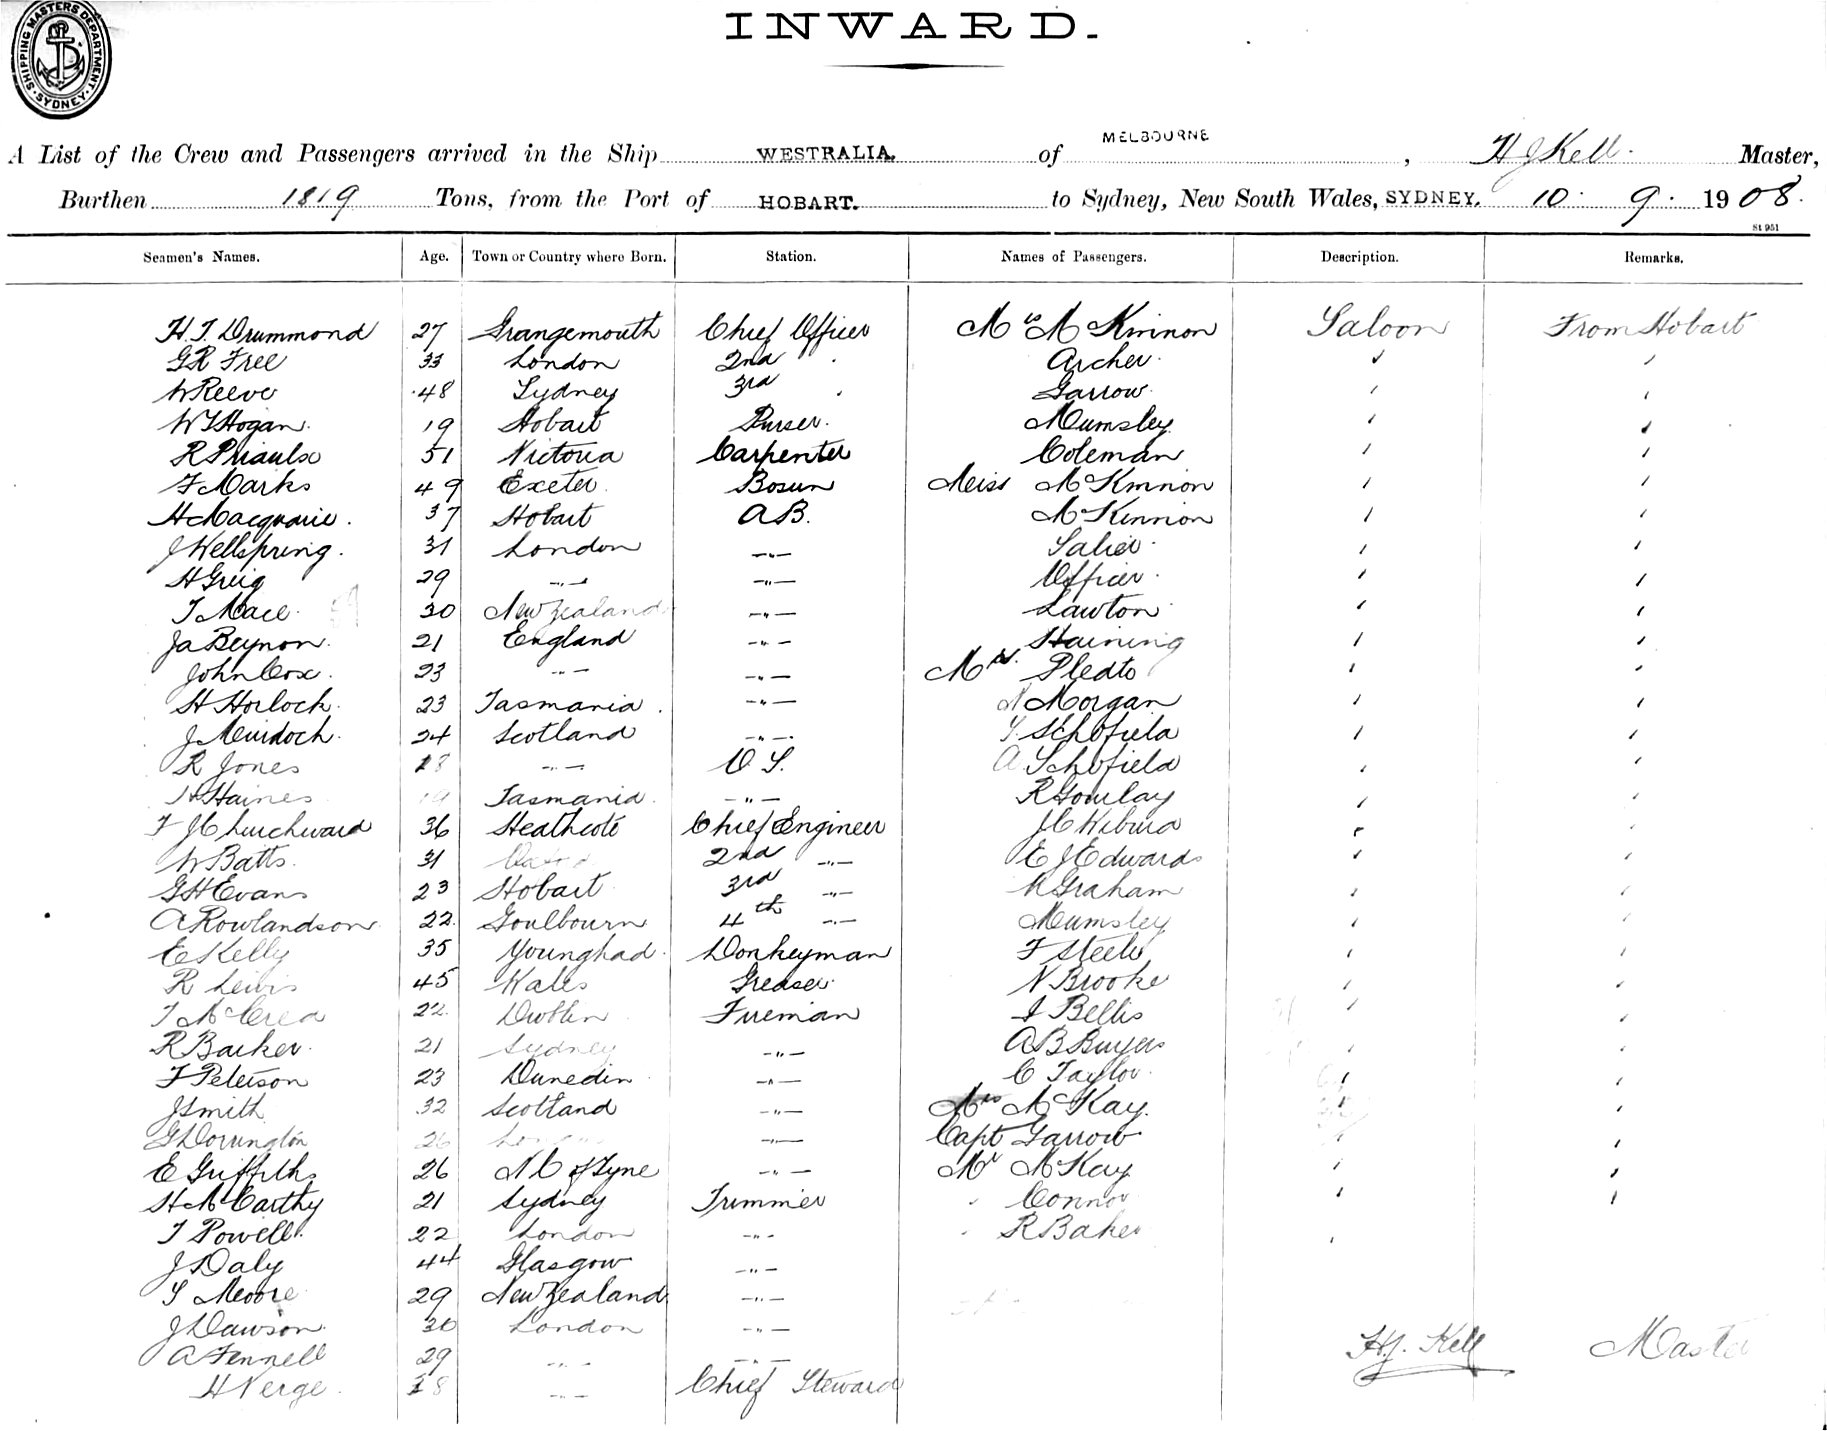 SHIPPING MASTERS DEPARTMENT. SYDNEY
INWARD.
A List of the Crew and Passengers arrived in the Ship WESTRALIA. of MELBOURNE, H J Kell. Master,
Burthen 1819 Tons, from the Port of HOBART. to Sydney, New South Wales, SYDNEY. 10. 9. 1908.
St 951
Seamen's Names. Age. Town or Country where Born. Station. Names of Passengers. Description. Remarks.
H. T. Drummond 27 Grangemouth Chief Officer Mrs McKinnon Saloon From Hobart
G R Free 33 London 2nd Archer
W Reeve 48 Sydney 3rd Garrow
W Hogan. 19 Hobart Purser. Mumsley
R Priaulx 51 Victoria Carpenter Coleman
F Marks 49 Exeter Bosun Miss McKinnon
H Macquarie. 37 Hobart A B. McKinnon
J Wellspring. 31 London -"- Salier
H Greig 29 -"- -"- Officer
T Mace. 30 New Zealand -"- Lawton
Ja Beynon. 21 England -"- Haining
John Cox. 23 -"- -"- Mr.
H Horlock. 23 Tasmania. -"- Morgan
J Murdoch. 24 Scotland -"- Schofield
R Jones 18 -"- O S. A Schofield
H Haines 19 Tasmania. -"- R Gourlay
F J Churchward 36 Heathcote Chief Engineer
W Batts. 31 2nd -"- E J Edwards
G H Evans 23 Hobart 3rd -"- Graham
A Rowlandson 22. Goulbourn 4th -"- Mumsley
E Kelly 35 Younghad. Donkeyman F Steele
R Lewis 45 Wales Greaser. N Brooke
T McCrea 22. Dublin Fireman Bellis
R Barker. 21 Sydney -"- A B Buyers
F Peterson 23 Dunedin -"- C Taylor.
J Smith 32 Scotland -"- Mrs McKay.
G Dorrington 26 -"- Capt Garrow
E Griffiths 26 N C of Tyne -"- Mr McKay
H McCarthy 21 Sydney Trimmer Connor
T Powell. 22 London -"- R Baker
J Daly 44 Glasgow -"-
S Moore 29 New Zealand -"-
J Dawson. 30 London -"-
A Fennell 29 -"- -"- H. J. Kell Master
H Verge. 18 -"- Chief Steward